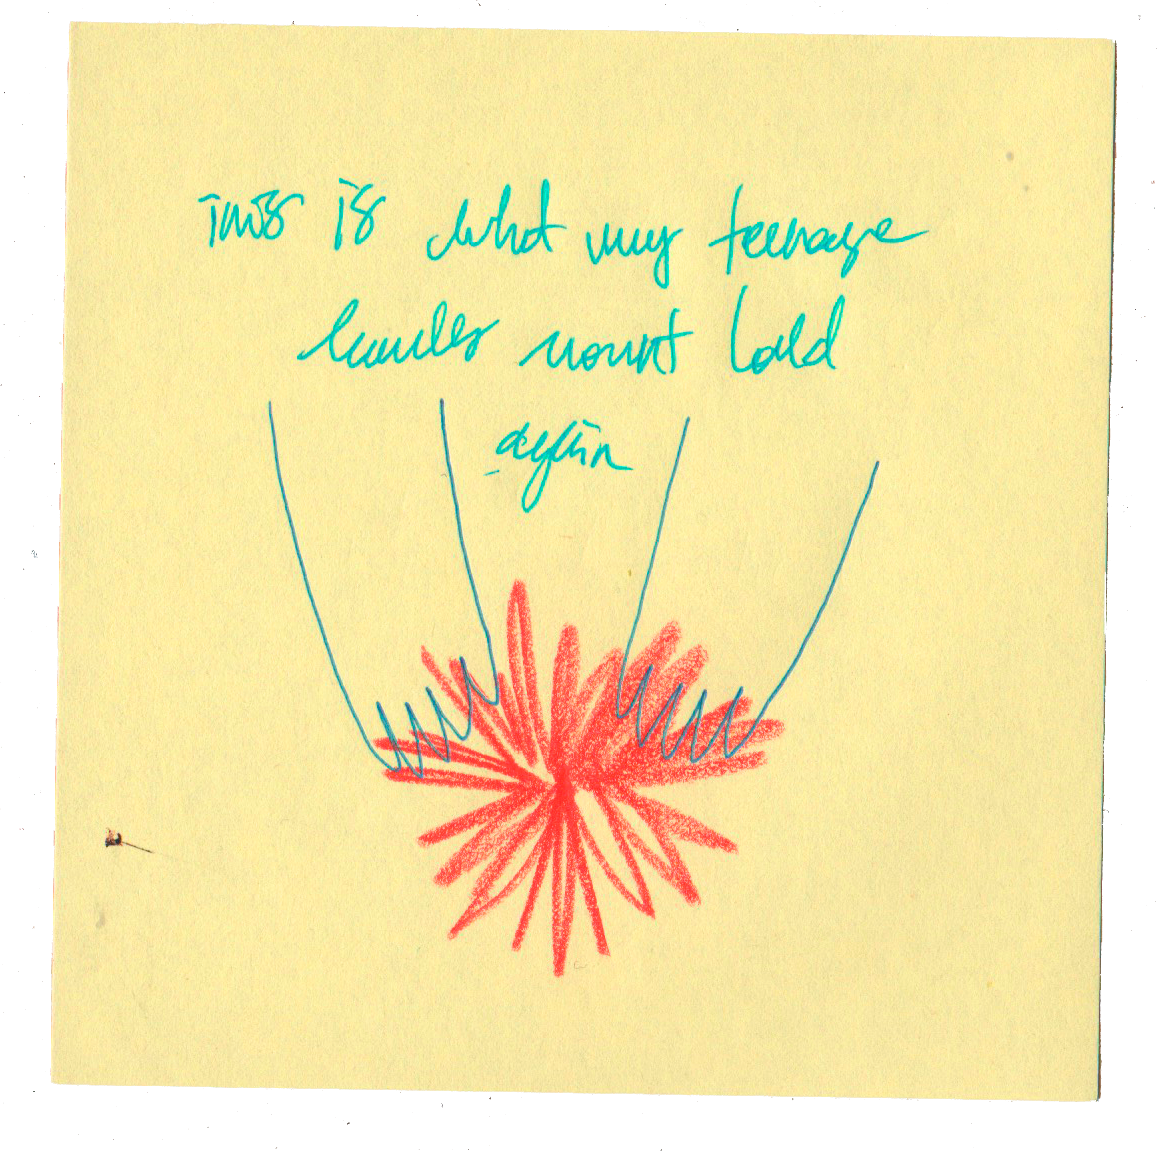 this is what my teenage
hands wount hold
again